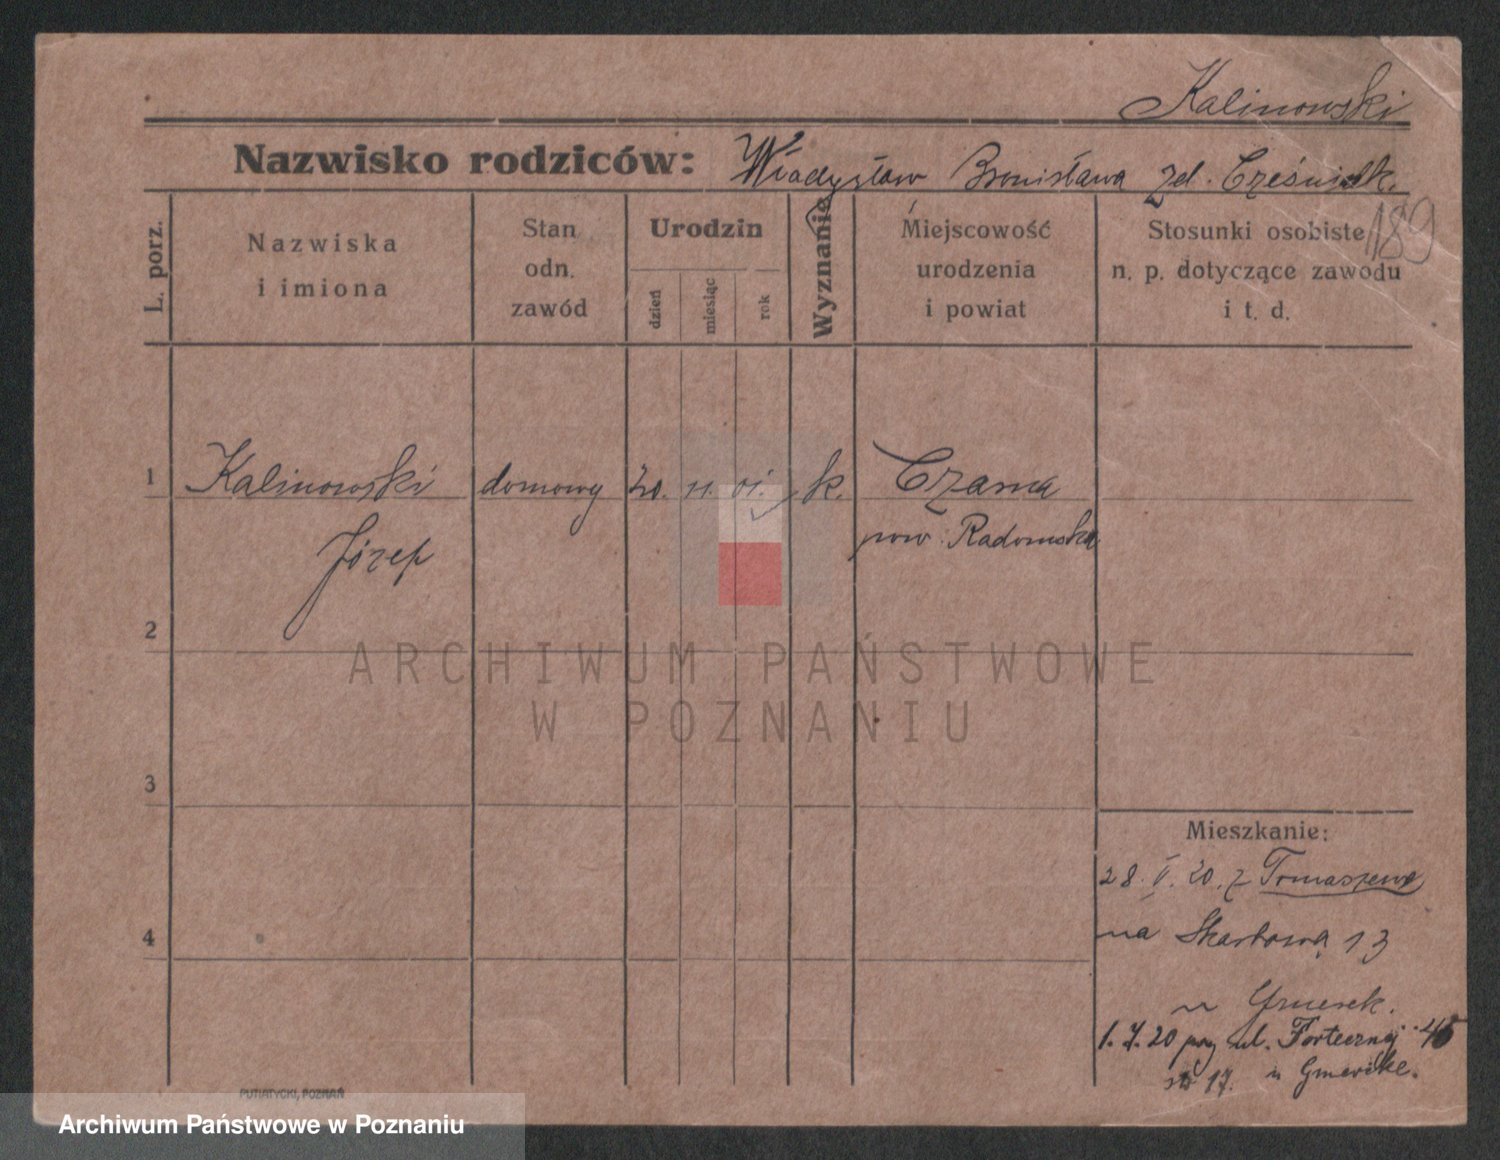 Kalinowski
Nazwisko rodziców: Władysław Bronisława zd. Cześnik.
189
L. porz.
Nazwiska
i imiona
Stan
odn.
zawód
Urodzin
dzień
miesiąc
rok
Wyznanie
Miejscowość
urodzenia
i powiat
Stosunki osobiste
n. p. dotyczące zawodu
i t. d.
1
Kalinowski
Józef
domowy
20. 11. 01.
k.
Czarna
pow. Radomsko
2
ARCHIWUM PAŃSTWOWE
W POZNANIU
3
4
Mieszkanie:
28. V. 20. z Tomaszewa
na Skarbową 13
1. 7. 20 ul. Fortecznej 45
17. u
PUTIATYCKI, POZNAŃ
Archiwum Państwowe w Poznaniu